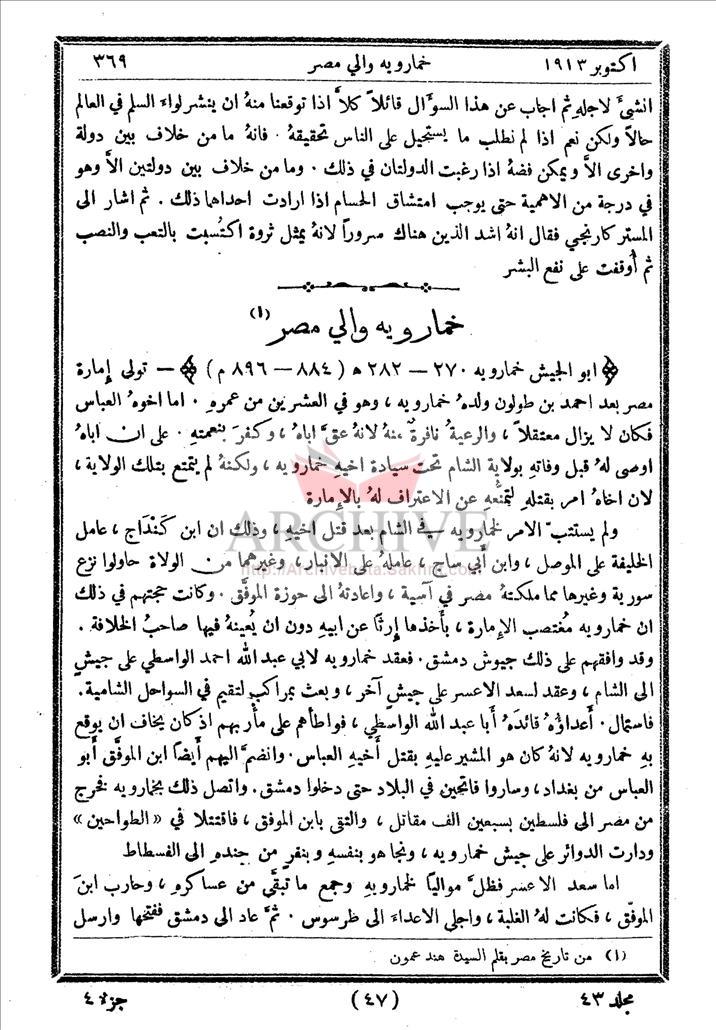 اكتوبر ١٩١٣ خمارويه والي مصر ٣٦٩
انشئَ لاجلهِ ثم اجاب عن هذا السوآل قائلاً كلاَّ اذا توقعنا منهُ ان ينشر لواءَ السلم في العالم
حالاً ولكن نعم اذا لم نطلب ما يستحيل على الناس تحقيقهُ . فانهُ ما من خلاف بين دولة
واخرى الاَّ ويمكن فضهُ اذا رغبت الدولتان في ذلك . وما من خلاف بين دولتين الاَّ وهو
في درجة من الاهمية حتى يوجب امتشاق الحسام اذا ارادت احداهما ذلك . ثم اشار الى
المستر كارنجي فقال انهُ اشد الذين هناك سروراً لانهُ يمثل ثروة اكتُسبت بالتعب والنصب
ثم أُوقفت على نفع البشر
خمارويه والي مصر (١)
﴿ ابو الجيش خمارويه ٢٧٠ — ٢٨٢ ه (٨٨٤ — ٨٩٦ م) ﴾ — تولى إمارة
مصر بعد احمد بن طولون ولدهُ خمارويه ، وهو في العشرين من عمرهِ . اما اخوهُ العباس
فكان لا يزال معتقلاً ، والرعيةُ نافرةٌ منهُ لانهُ عقَّ اباهُ ، وكفرَ بنعمتهِ . على ان اباهُ
اوصى لهُ قبل وفاتهِ بولاية الشام تحت سيادة اخيهِ خمارويه ، ولكنهُ لم يتمتع بتلك الولاية ،
لان اخاهُ امر بقتلهِ لتمنُّعهِ عن الاعتراف لهُ بالإمارة
ولم يستتبّ الامر لخمارويه في الشام بعد قتل اخيهِ ، وذلك ان ابن كَنْداج ، عامل
الخليفة على الموصل ، وابن أبي ساج ، عاملهُ على الانبار ، وغيرهما من الولاة حاولوا نزع
سورية وغيرها مما ملكتهُ مصر في آسية ، واعادتهُ الى حوزة الموفَّق . وكانت حجتهم في ذلك
ان خمارويه مُغتصب الإمارة ، يأخذها إرثًا عن ابيهِ دون ان يُعينهُ فيها صاحبُ الخلافة .
وقد وافقهم على ذلك جيوش دمشق . فعقد خمارويه لابي عبد الله احمد الواسطي على جيشٍ
الى الشام ، وعقد لسعد الاعسر على جيشٍ آخر ، وبعث بمراكب لتقيم في السواحل الشامية .
فاستمال . أعداؤهُ قائدَهُ أبا عبد الله الواسطي ، فواطأهم على مأربهم اذ كان يخاف ان يوقع
بهِ خمارويه لانهُ كان هو المشير عليهِ بقتل أخيهِ العباس . وانضمَّ اليهم أيضاً ابن الموفَّق أبو
العباس من بغداد ، وساروا فاتحين في البلاد حتى دخلوا دمشق . واتصل ذلك بخمارويه فخرج
من مصر الى فلسطين بسبعين الف مقاتل ، والتقى بابن الموفق ، فاقتتلا في «الطواحين»
ودارت الدوائر على جيش خمارويه ، ونجا هو بنفسهِ وبنفرٍ من جندهِ الى الفسطاط
اما سعد الاعسر فظلَّ مواليًا لخمارويهِ وجمع ما تبقَّى من عساكرهِ ، وحارب ابنَ
الموفّق ، فكانت لهُ الغلبة ، واجلى الاعداءَ الى طرسوس . ثمَّ عاد الى دمشق ففتحها وارسل
(١) من تاريخ مصر بقلم السيدة هند عمون
مجلد ٤٣ (٤٧) جزء ٤
ARCHIVE